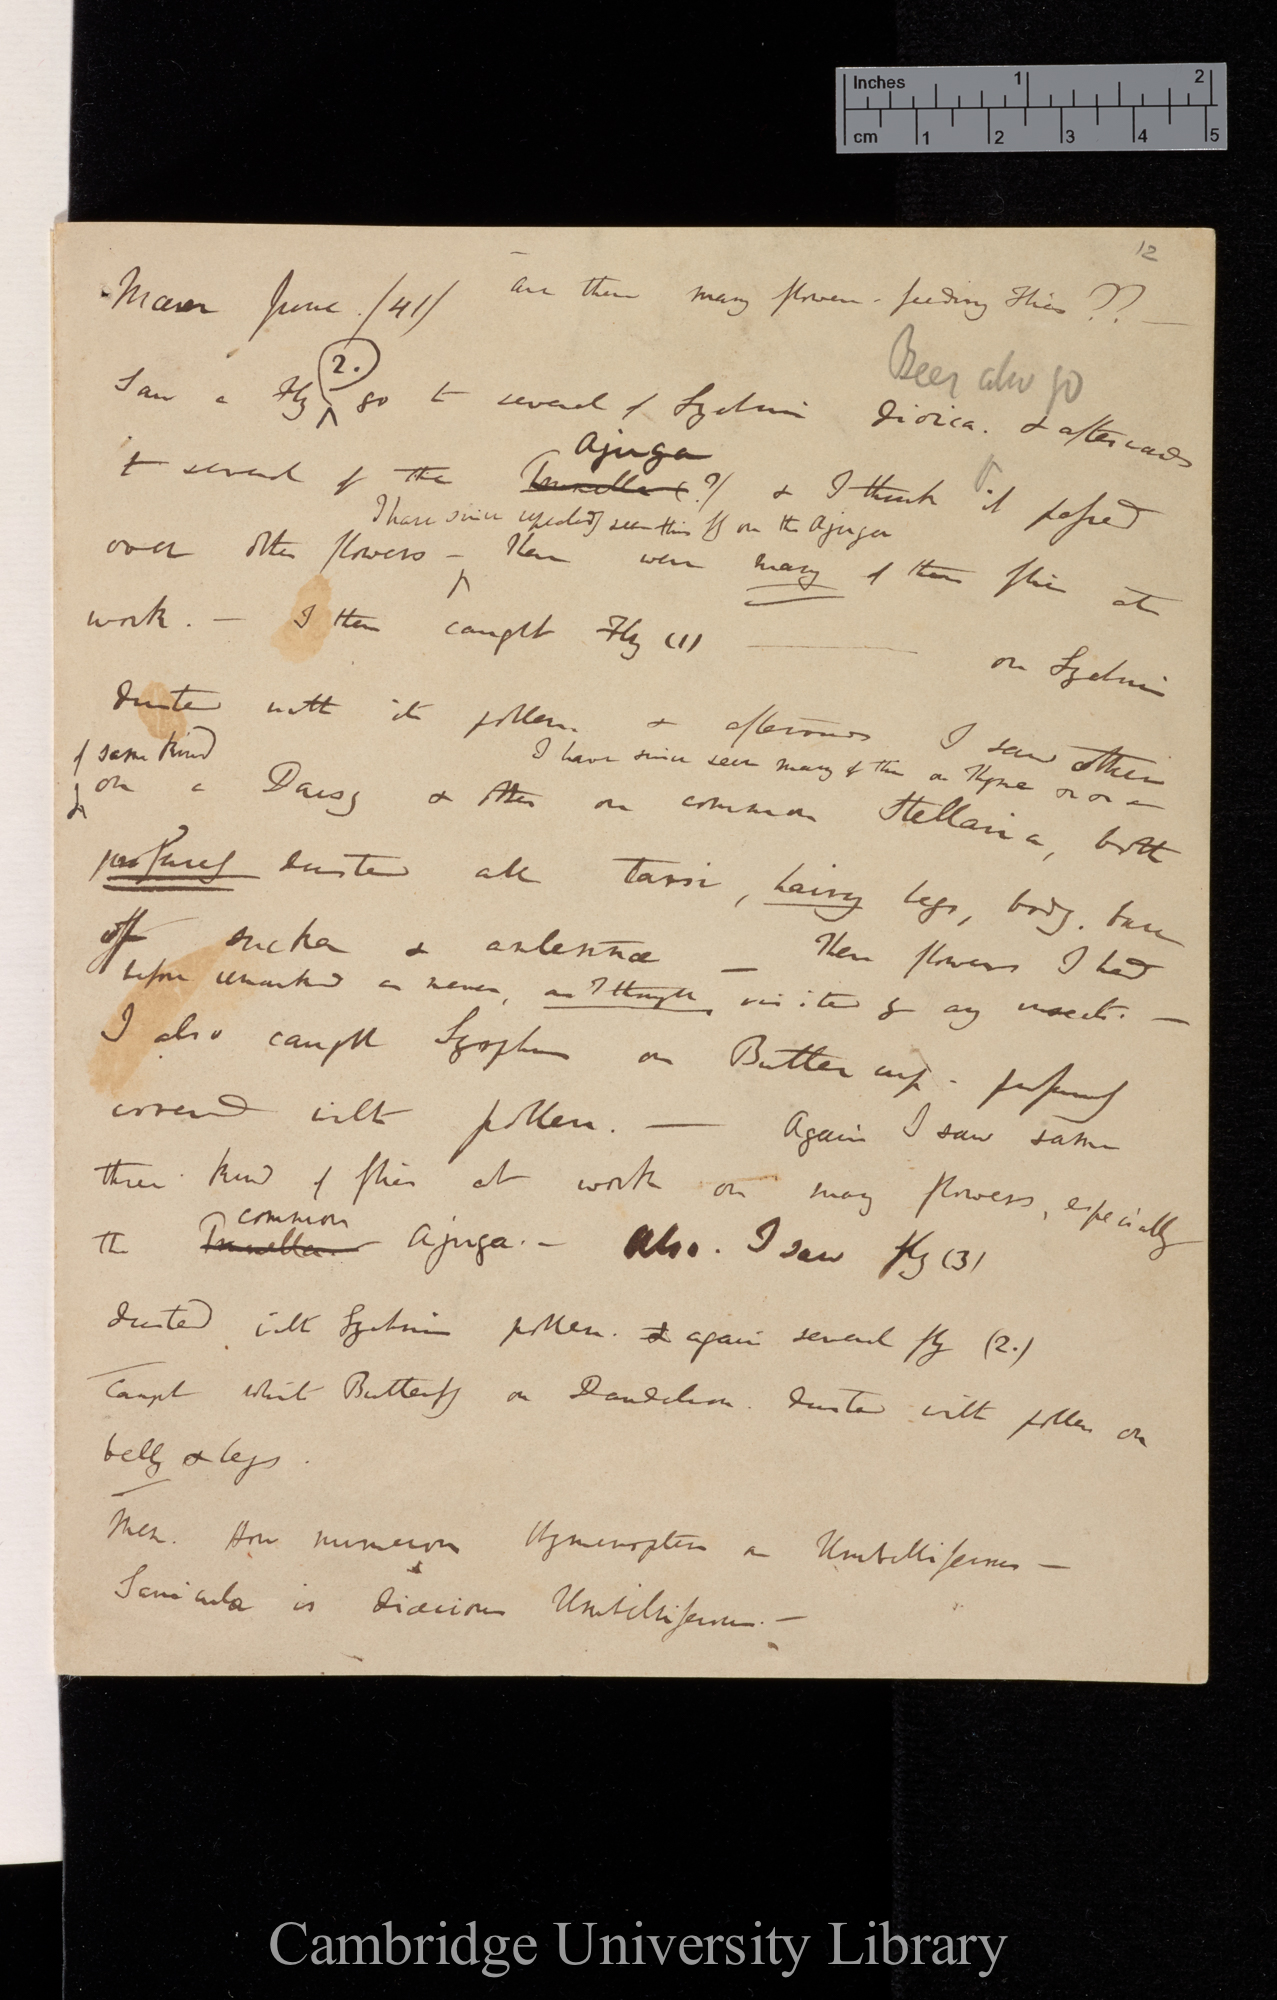 Inches 1 2
cm 1 2 3 4 5
12
Maer June /41/ Are there many flower-feeding Flies??—
Bees also go
2.
Saw a Fly go to several of Lychnis dioica. & afterwards
Ajuga
to several of the Prunella (?) & I think it passed
I have since repeatedly seen this fly on the Ajuga
over other flowers — There were many of these flies at
work. — I then caught Fly (1) on Lychnis
dusted with its pollen & afterwards I saw others
of same kind I have since seen many of these on Thyme
on a Daisy & other on common Stellaria, both
profusely dusted all Tarsi, hairy legs, body, base
of sucker & antennæ — These flowers I had
before remarked as never, as I thought, visited by any insects. —
I also caught Syrphus on Butter cup - profusely
covered with pollen. — Again I saw same
three kind of flies at work on many flowers, especially
common
the Prunella Ajuga. — Also. I saw fly (3)
dusted with Lychnis pollen. & again several fly (2.)
Caught white Butterfly on Dandelion. dusted with pollen on
belly & legs.
Mem. How numerous Hymenoptera on Umbelliferous —
Sanicula is diœcious Umbelliferous. —
Cambridge University Library